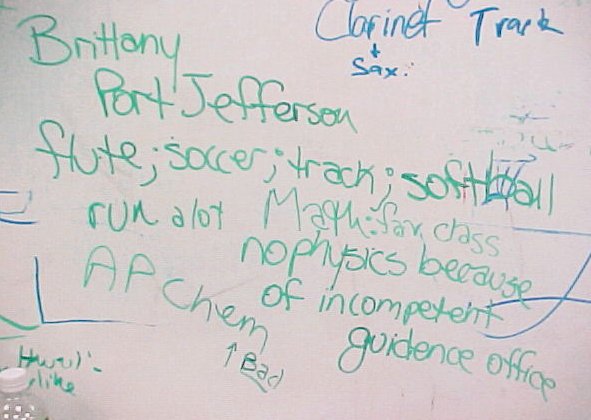 Clarinet Track
+
Sax.
Brittany
Port Jefferson
flute; soccer; track; softball
run alot Math: fav class
no physics because
AP Chem of incompetent
↑ Bad guidence office
like